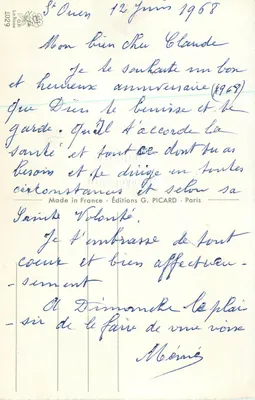 St Ouen 12 Juin 1968
Mon bien cher Claude
Je te souhaite un bon
et heureux anniversaire (1968)
que Dieu te benisse et te
garde. Qu'il t'accorde la
santé et tout ce dont tu as
besoin et te dirige en toutes
circonstances et selon sa
Sainte Volonté.
Made in France - Éditions G. PICARD - Paris
Je t'embrasse de tout
coeur et bien affectueu-
-sement
A Dimanche le plai-
-sir de le faire de vive voix
Mémé